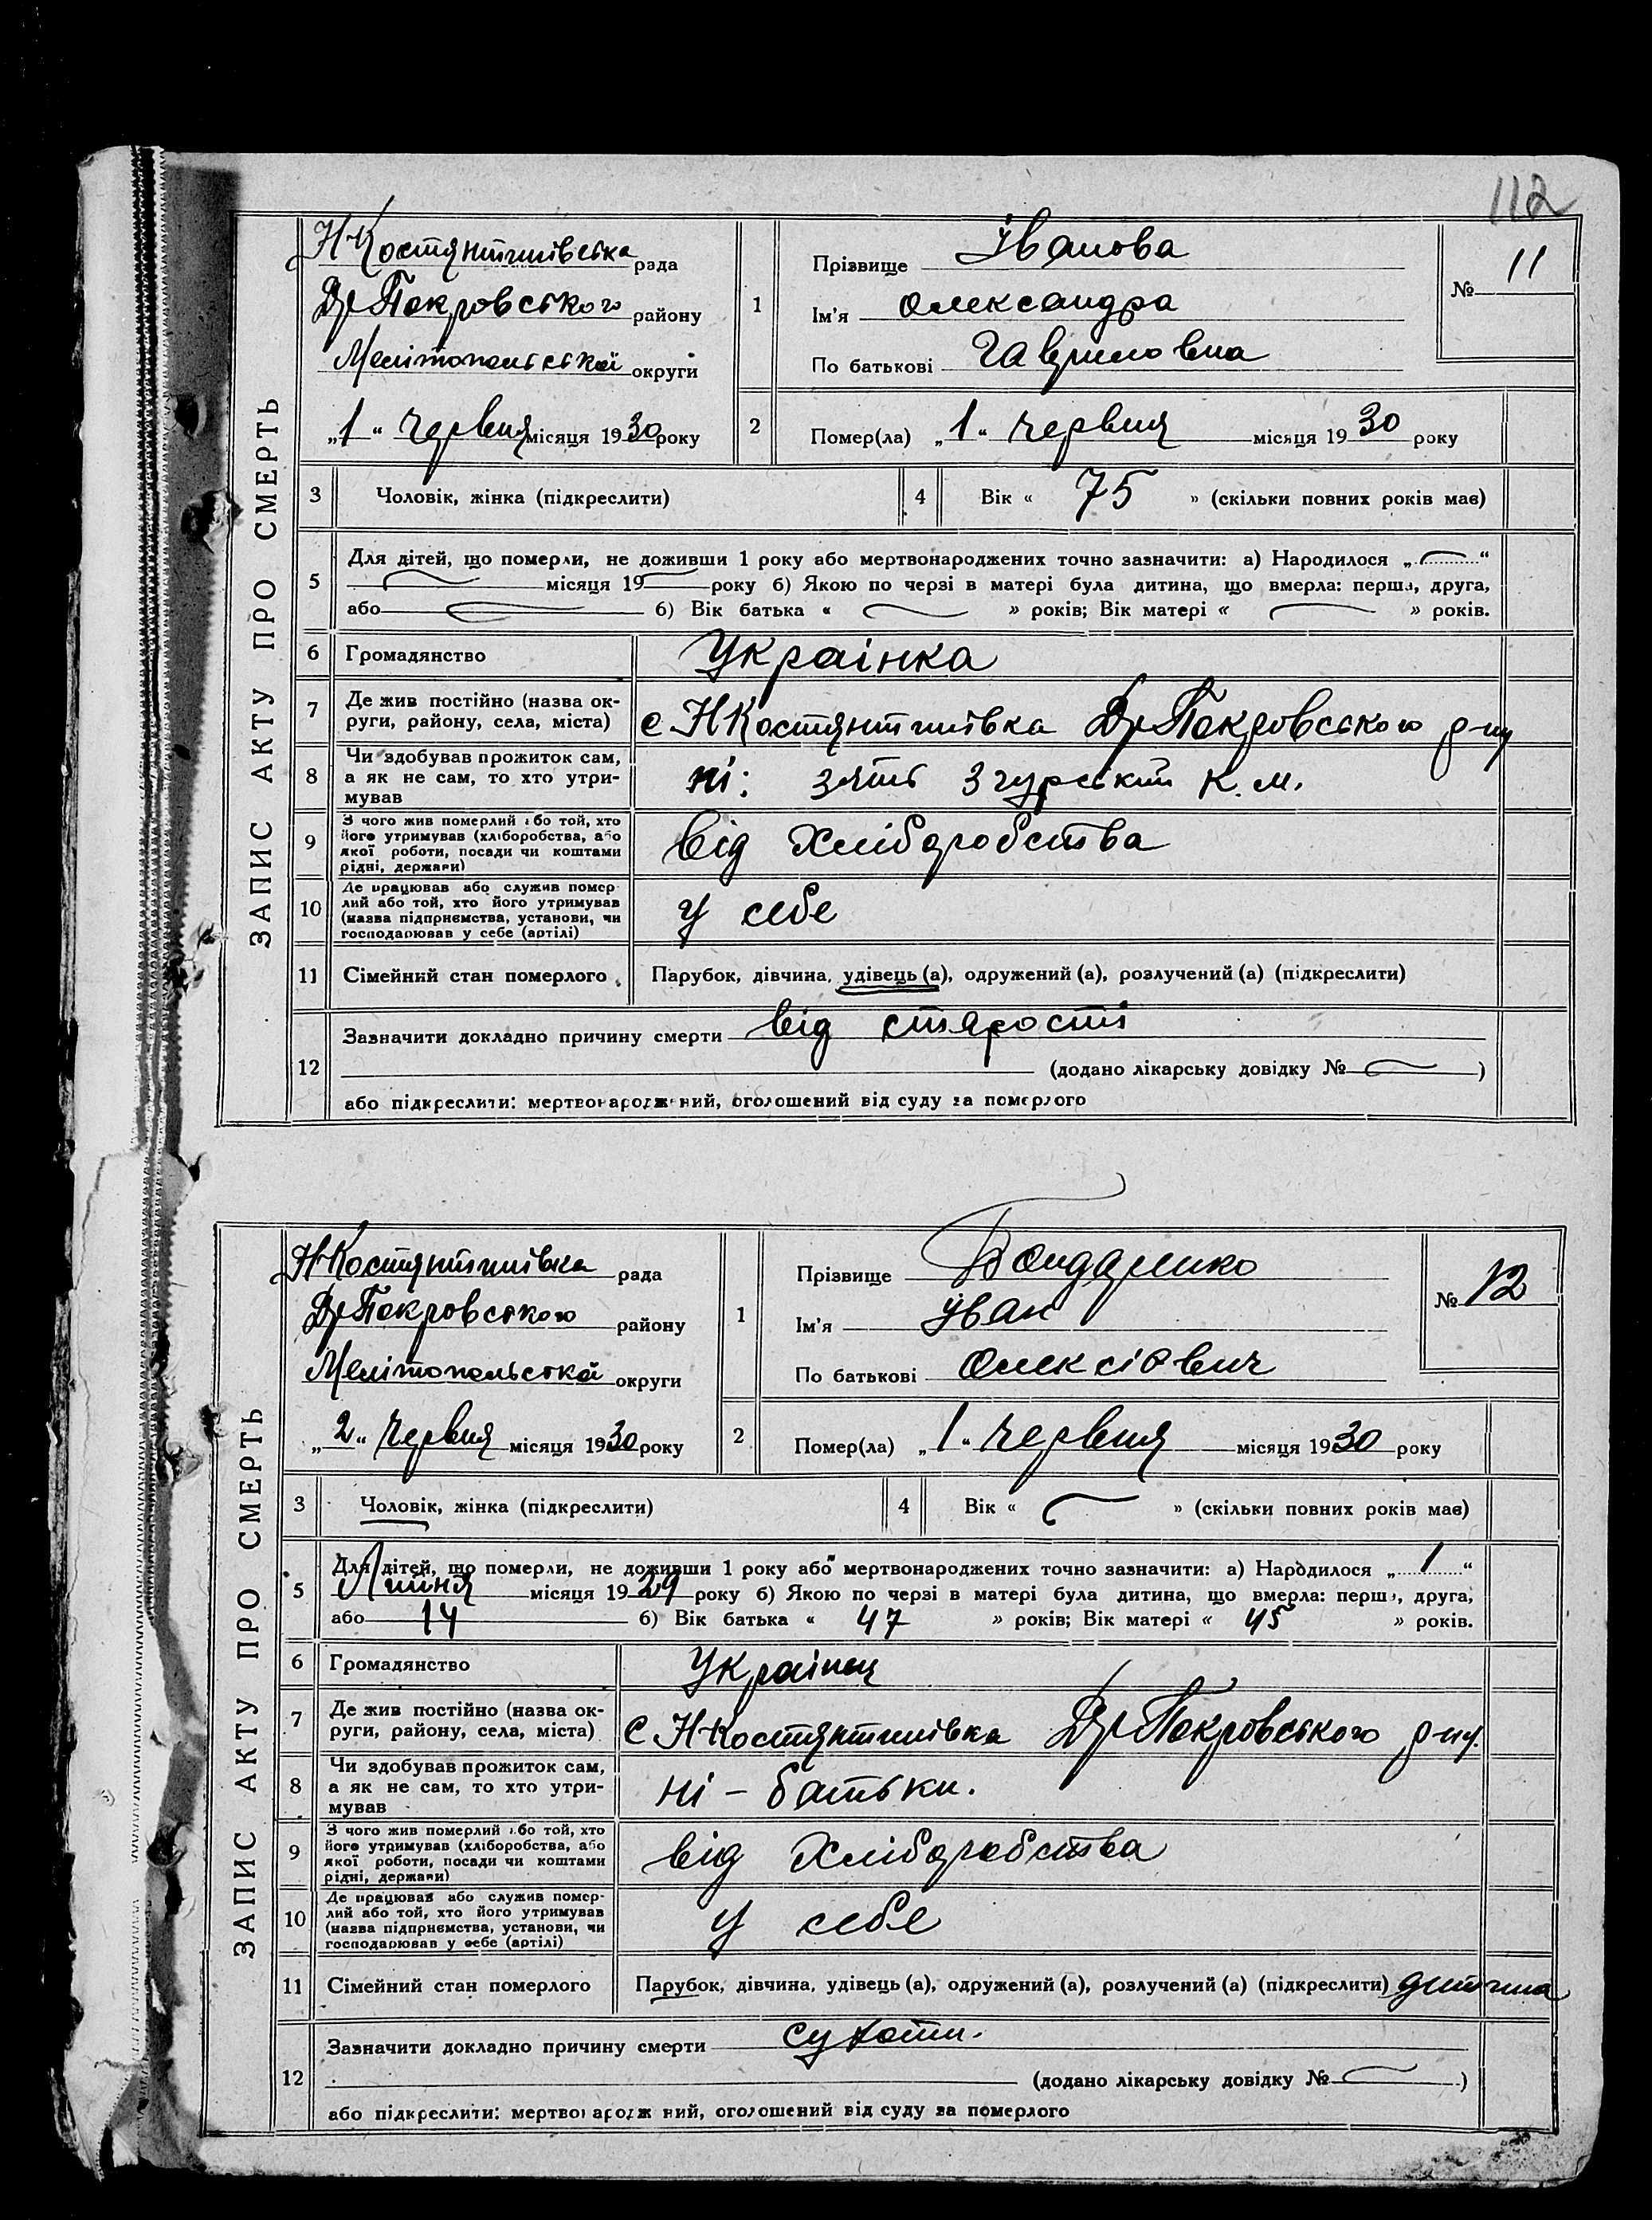 112
ЗАПИС АКТУ ПРО СМЕРТЬ
Н Костянтинівська рада
Др Покровського району
Мелітопольської округи
„1“ червня місяця 1930 року
1
Прізвище Іванова
Ім'я Олександра
По батькові Гавриловна
№ 11
2
Помер(ла) „1“ червня місяця 1930 року
3 Чоловік, жінка (підкреслити)
4 Вік « 75 » (скільки повних років має)
5
Для дітей, що померли, не доживши 1 року або мертвонароджених точно зазначити: а) Народилося „ “
місяця 19 року б) Якою по черзі в матері була дитина, що вмерла: перша, друга,
або б) Вік батька « » років; Вік матері « » років.
6 Громадянство Українка
7 Де жив постійно (назва ок-
руги, району, села, міста) с Н Костянтинівка Др Покровського р-ну
8 Чи здобував прожиток сам,
а як не сам, то хто утри-
мував
ні: зять Згурський К. М.
9 З чого жив померлий або той, хто
його утримував (хліборобства, або
якої роботи, посади чи коштами
рідні, держави)
від Хліборобства
10 Де працював або служив помер-
лий або той, хто його утримував
(назва підприємства, установи, чи
господарював у себе (артілі)
у себе
11 Сімейний стан померлого Парубок, дівчина, удівець (а), одружений (а), розлучений (а) (підкреслити)
12
Зазначити докладно причину смерти від старости
(додано лікарську довідку № )
або підкреслити: мертвонароджений, оголошений від суду за померлого
ЗАПИС АКТУ ПРО СМЕРТЬ
Н Костянтинівка рада
Др Покровського району
Мелітопольської округи
„2“ червня місяця 1930 року
1
Прізвище Бондаренко
Ім'я Іван
По батькові Олексієвич
№ 12
2
Помер(ла) „1“ червня місяця 1930 року
3 Чоловік, жінка (підкреслити)
4 Вік « » (скільки повних років має)
5
Для дітей, що померли, не доживши 1 року або мертвонароджених точно зазначити: а) Народилося „1“
Липня місяця 1929 року б) Якою по черзі в матері була дитина, що вмерла: перша, друга,
або 14 б) Вік батька « 47 » років; Вік матері « 45 » років.
6 Громадянство Українец
7 Де жив постійно (назва ок-
руги, району, села, міста) с Н Костянтинівка Др Покровського р-ну.
8 Чи здобував прожиток сам,
а як не сам, то хто утри-
мував
ні - батьки.
9 З чого жив померлий або той, хто
його утримував (хліборобства, або
якої роботи, посади чи коштами
рідні, держави)
від Хліборобства
10 Де працював або служив помер-
лий або той, хто його утримував
(назва підприємства, установи, чи
господарював у себе (артілі)
у себе
11 Сімейний стан померлого Парубок, дівчина, удівець (а), одружений (а), розлучений (а) (підкреслити) дитина
12
Зазначити докладно причину смерти сухоти.
(додано лікарську довідку № )
або підкреслити: мертвонароджений, оголошений від суду за померлого